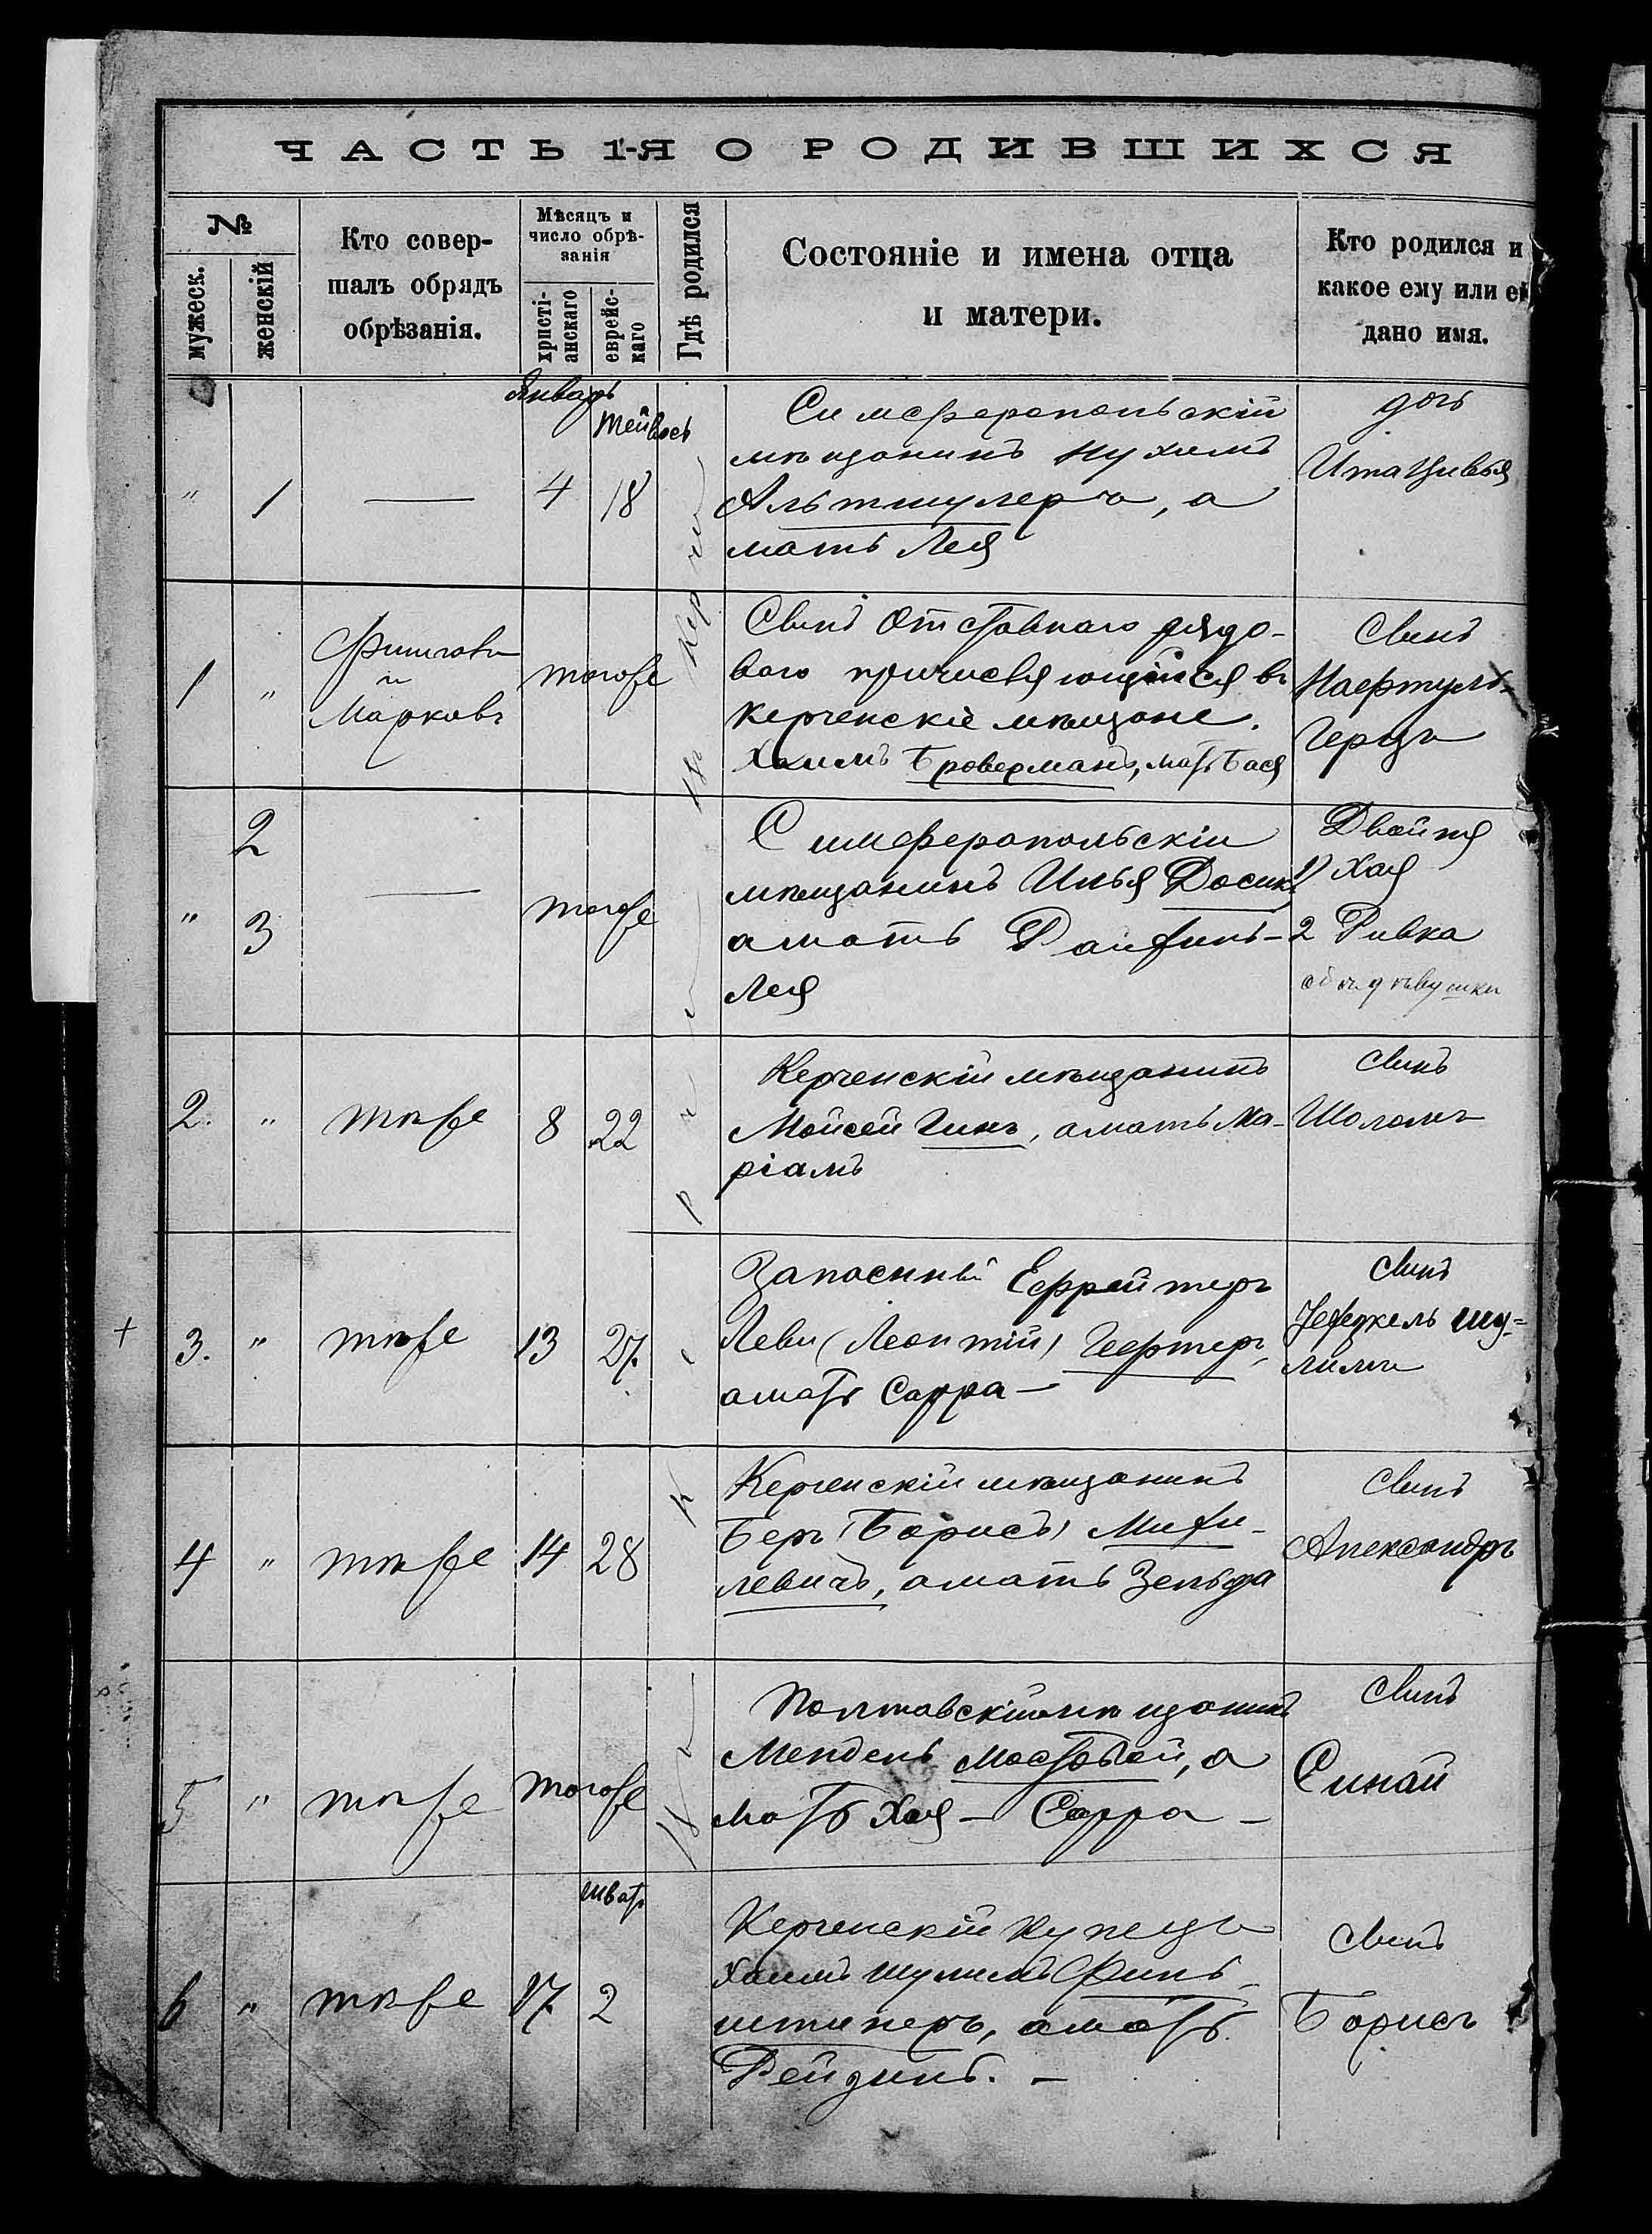 ЧАСТЬ 1-Я О РОДИВШИХСЯ
№
мужеск.
женскій
Кто совер-
шалъ обрядъ
обрѣзанія.
Мѣсяцъ и
число обрѣ-
занія
христі-
анскаго
еврейс-
каго
Гдѣ родился
Состояніе и имена отца
и матери.
Кто родился и
какое ему или ей
дано имя.
Январь
Тейвесъ
" 1 — 4 18
Симферопольскій
мѣщанинъ Нухимъ
Альтшулеръ, а
мать Лея
дочь
Ита Цивья
1 "
и
Марковъ
тогоже
Сынъ Отставнаго рядо-
ваго причисляющійся въ
Керченскіе мѣщане.
Хаимъ Броверманъ, мать Бася
Сынъ
Нафтулъ
Герцъ
" 2
3
—
тогоже
Симферопольскій
мѣщанинъ Илья Досикъ
а мать Райхиль-
Лея
Двойня
1) Хая
2 Ривка
обѣ дѣвушки
2. " тѣже 8 22
Керченскій мѣщанинъ
Мойсей Гинъ, а мать Ма-
ріамъ
Сынъ
Шоломъ
3. " тѣже 13 27.
Запасный Ефрейторъ
Леви (Леонтій) Гефтеръ,
а мать Сарра —
Сынъ
Хецкель Шу-
лимъ
4 " тѣже 14 28
Керченскій мѣщанинъ
Беръ (Борисъ) Михе-
левичъ, а мать Зельда
Сынъ
Александръ
5 " тѣже тогоже
Полтавскій мѣщанинъ
Мендель Мостовой, а
мать Хая — Сарра —
Сынъ
Синай
шватъ
6 " тѣже 17 2
Керченскій Купецъ
Хаимъ Шулимъ Финк-
штинеръ, а мать
Рейзинъ. —
Сынъ
Борисъ
въ Керчи